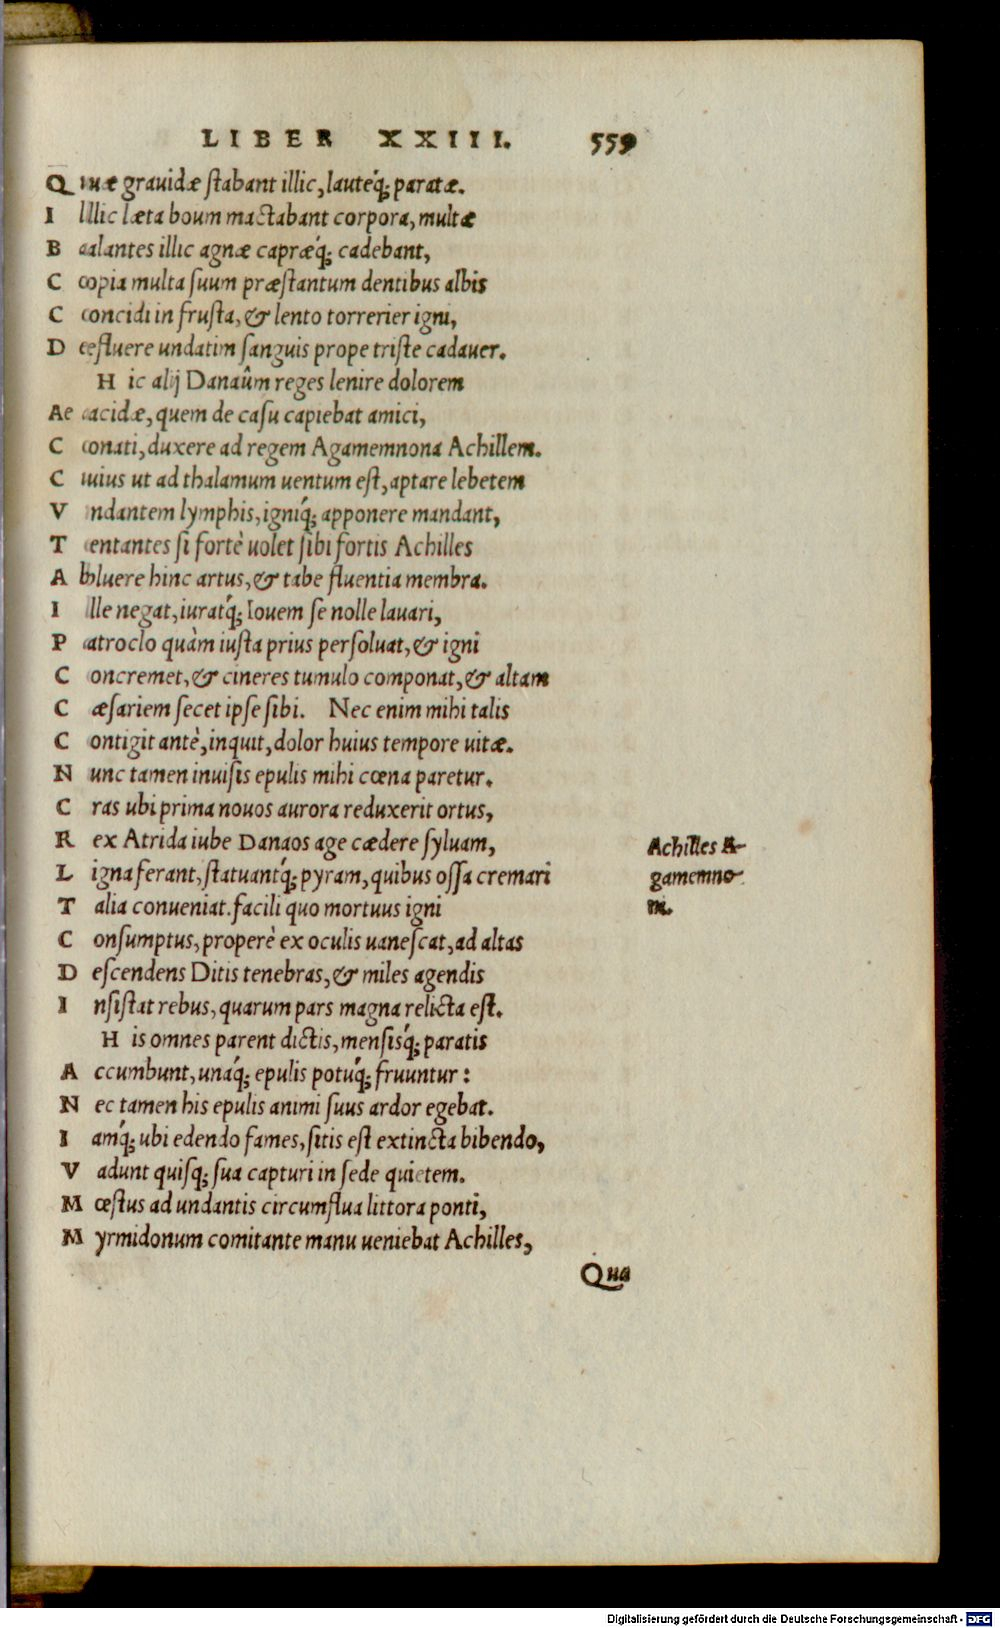 LIBER XXIII. 559
Quæ grauidæ stabant illic, lauteq́; paratæ.
Illic læta boum mactabant corpora, multæ
Balantes illic agnæ capræq́; cadebant,
Copia multa suum præstantum dentibus albis
Concidi in frusta, & lento torrerier igni,
Defluere undatim sanguis prope triste cadauer.
Hic alij Danaûm reges lenire dolorem
Aeacidæ, quem de casu capiebat amici,
Conati, duxere ad regem Agamemnona Achillem.
Cuius ut ad thalamum uentum est, aptare lebetem
Vndantem lymphis, igniq́; apponere mandant,
Tentantes si fortè uolet sibi fortis Achilles
Abluere hinc artus, & tabe fluentia membra.
Ille negat, iuratq́; Iouem se nolle lauari,
Patroclo quàm iusta prius persoluat, & igni
Concremet, & cineres tumulo componat, & altam
Cæsariem secet ipse sibi. Nec enim mihi talis
Contigit antè, inquit, dolor huius tempore uitæ.
Nunc tamen inuisis epulis mihi cœna paretur.
Cras ubi prima nouos aurora reduxerit ortus,
Rex Atrida iube Danaos age cædere syluam,
Ligna ferant, statuantq́; pyram, quibus ossa cremari
Talia conueniat. facili quo mortuus igni
Consumptus, properè ex oculis uanescat, ad altas
Descendens Ditis tenebras, & miles agendis
Insistat rebus, quarum pars magna relicta est.
His omnes parent dictis, mensisq́; paratis
Accumbunt, unaq́; epulis potuq́; fruuntur:
Nec tamen his epulis animi suus ardor egebat.
Iamq́; ubi edendo fames, sitis est extincta bibendo,
Vadunt quisq; sua capturi in sede quietem.
Mœstus ad undantis circumflua littora ponti,
Myrmidonum comitante manu ueniebat Achilles,
Qua
Achilles A-
gamemno-
ni.
Digitalisierung gefördert durch die Deutsche Forschungsgemeinschaft - DFG